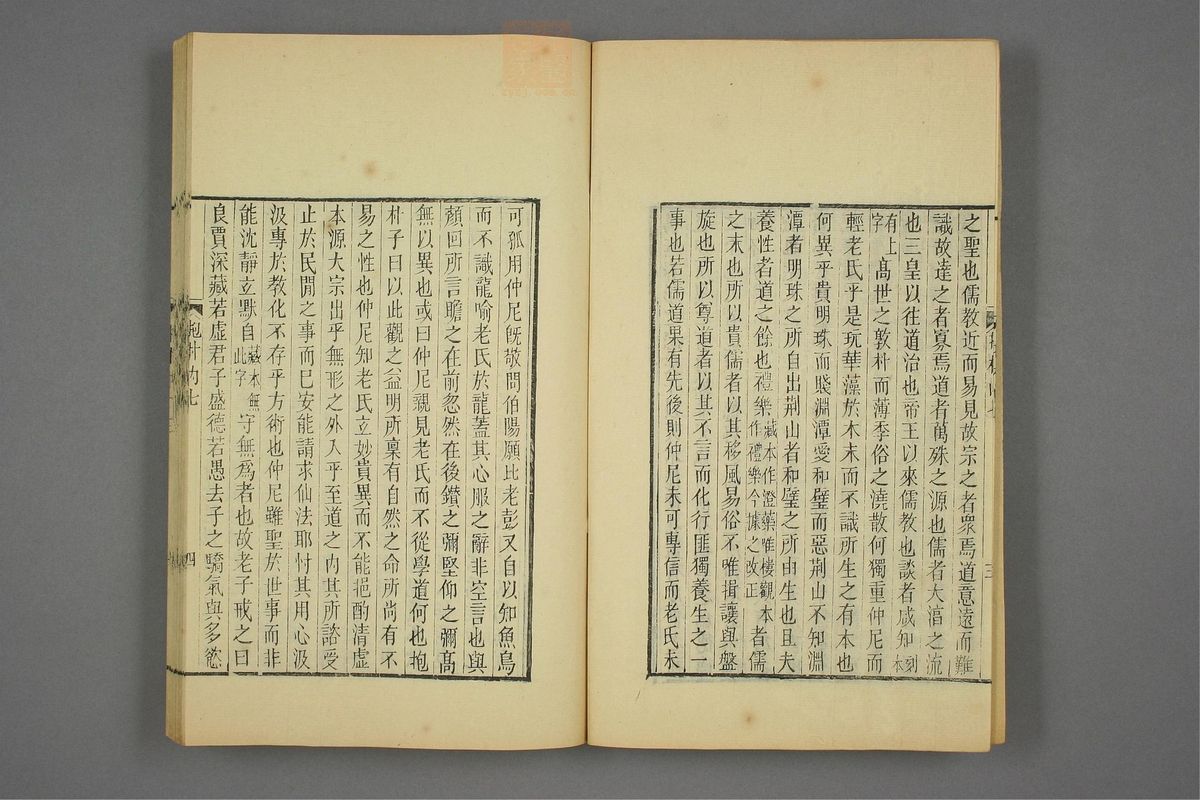 之聖也儒教近而易見故宗之者衆焉道意遠而難
識故達之者寡焉道者萬殊之源也儒者大淳之流
也三皇以往道治也帝王以來儒教也談者咸知刻本
有上字高世之敦朴而薄季俗之澆散何獨重仲尼而
輕老氏乎是玩華藻於木末而不識所生之有本也
何異乎貴明珠而賤淵潭愛和璧而惡荆山不知淵
潭者明珠之所自出荆山者和璧之所由生也且夫
養性者道之餘也禮樂藏本作證藥唯樓觀本作禮樂今據之改正者儒
之末也所以貴儒者以其移風易俗不唯揖讓與盤
旋也所以尊道者以其不言而化行匪獨養生之一
事也若儒道果有先後則仲尼未可專信而老氏未
三
可孤用仲尼旣敬問伯陽願比老彭又自以知魚鳥
而不識龍喻老氏於龍蓋其心服之辭非空言也與
顏回所言瞻之在前忽然在後鑽之彌堅仰之彌高
無以異也或曰仲尼親見老氏而不從學道何也抱
朴子曰以此觀之益明所稟有自然之命所尚有不
易之性也仲尼知老氏立妙貴異而不能挹酌清虛
本源大宗出乎無形之外入乎至道之内其所諮受
止於民閒之事而已安能請求仙法耶忖其用心汲
汲專於教化不存乎方術也仲尼雖聖於世事而非
能沈靜立默自藏本無此字守無爲者也故老子戒之曰
良賈深藏若虛君子盛德若愚去子之驕氣與多慾
抱朴内七
四